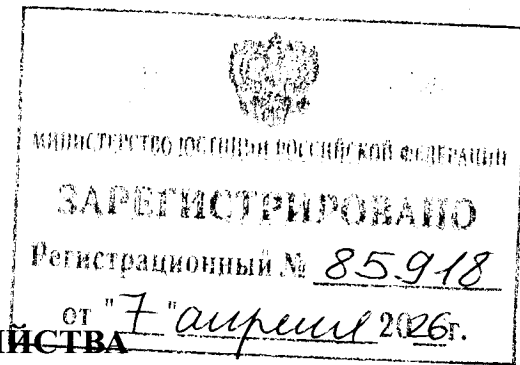 МИНИСТЕРСТВО ЮСТИЦИИ РОССИЙСКОЙ ФЕДЕРАЦИИ
ЗАРЕГИСТРИРОВАНО
Регистрационный № 85918
от "7" апреля 2026г.
ЙСТВА